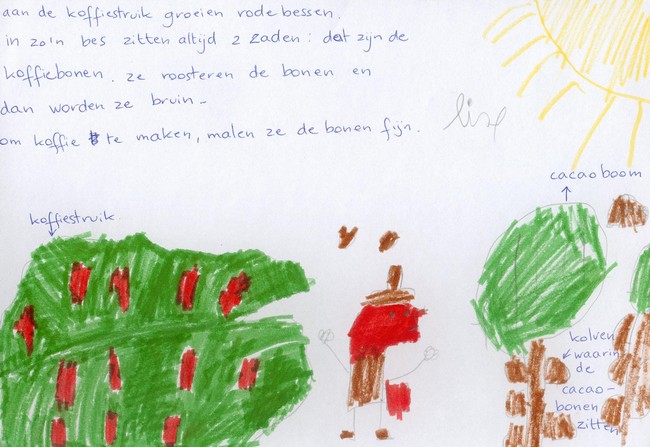 aan de koffiestruik groeien rode bessen.
in zo'n bes zitten altijd 2 zaden: dat zijn de
koffiebonen. ze roosteren de bonen en
dan worden ze bruin-
om koffie te maken, malen ze de bonen fijn.
lise
cacaoboom
koffiestruik
kolven
waarin
de
cacao-
bonen
zitten